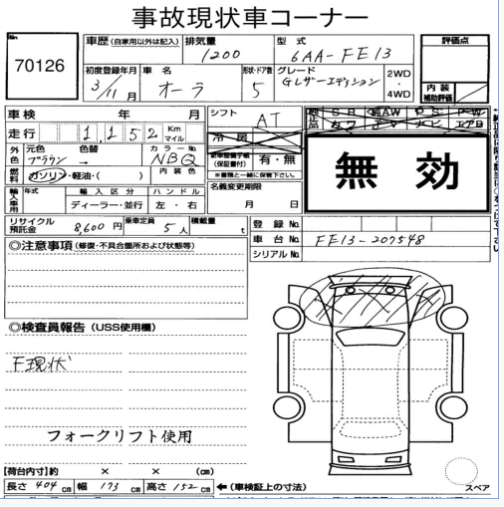 事故現状車コーナー
No.
70126
車歴 (自家用以外は記入)
排気量
1200
型式
6AA-FE13
評価点
初度登録年月
3/11月
車名
オーラ
形状・ドア数
5
グレード
Gレザーエディション
2WD
・
4WD
内装
補助評価
車検 年 月
シフト
AT
走行 1,152 Km
マイル
冷房
無効
外色
元色
ブラウン →
色替
カラーNo.
NBQ
有・無
※書類と一緒に保管下さい。
燃料
ガソリン・軽油・( )
内装色
名義変更期限
月 日
輸入車用
年式
輸入区分
ディーラー・並行
ハンドル
左・右
リサイクル預託金
8,600円
乗車定員
5人
積載量
t
登録No.
車台No.
FE13-207548
シリアルNo.
◎注意事項 (修復・不具合箇所および状態等)
◎検査員報告 (USS使用欄)
F現状
フォークリフト使用
【荷台内寸】約 × × (cm)
長さ 404 cm 幅 173 cm 高さ 152 cm
←(車検証上の寸法)
スペア